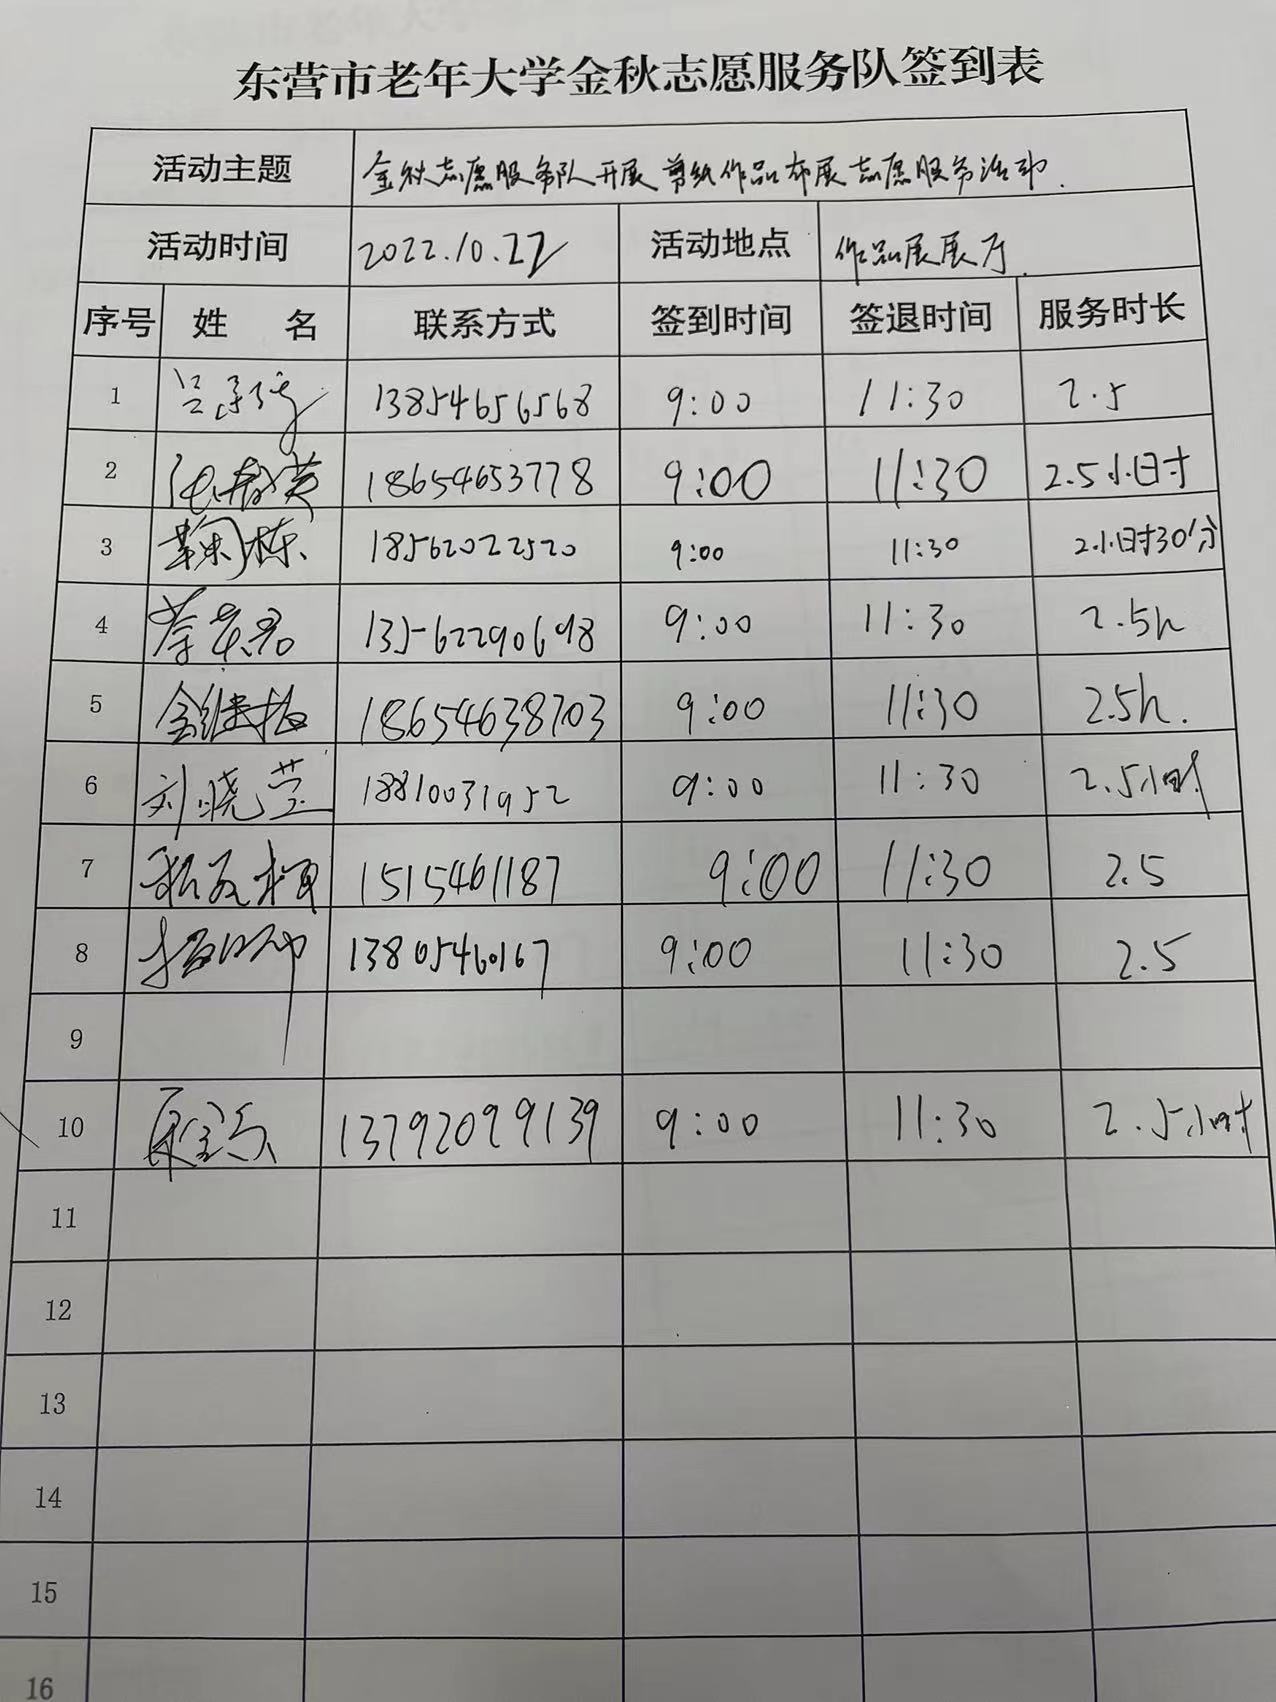 东营市老年大学金秋志愿服务队签到表
活动主题 金秋志愿服务队开展剪纸作品布展志愿服务活动.
活动时间 2022.10.22 活动地点 作品展展厅.
序号 姓 名 联系方式 签到时间 签退时间 服务时长
1 13854656568 9:00 11:30 2.5
2 18654653778 9:00 11:30 2.5小时
3 鞠栋 18562022520 9:00 11:30 2小时30分
4 13562290698 9:00 11:30 2.5h
5 18654638703 9:00 11:30 2.5h.
6 刘晓莹 18810031952 9:00 11:30 2.5小时
7 1515461187 9:00 11:30 2.5
8 13805460167 9:00 11:30 2.5
9
10 13792099139 9:00 11:30 2.5小时
11
12
13
14
15
16